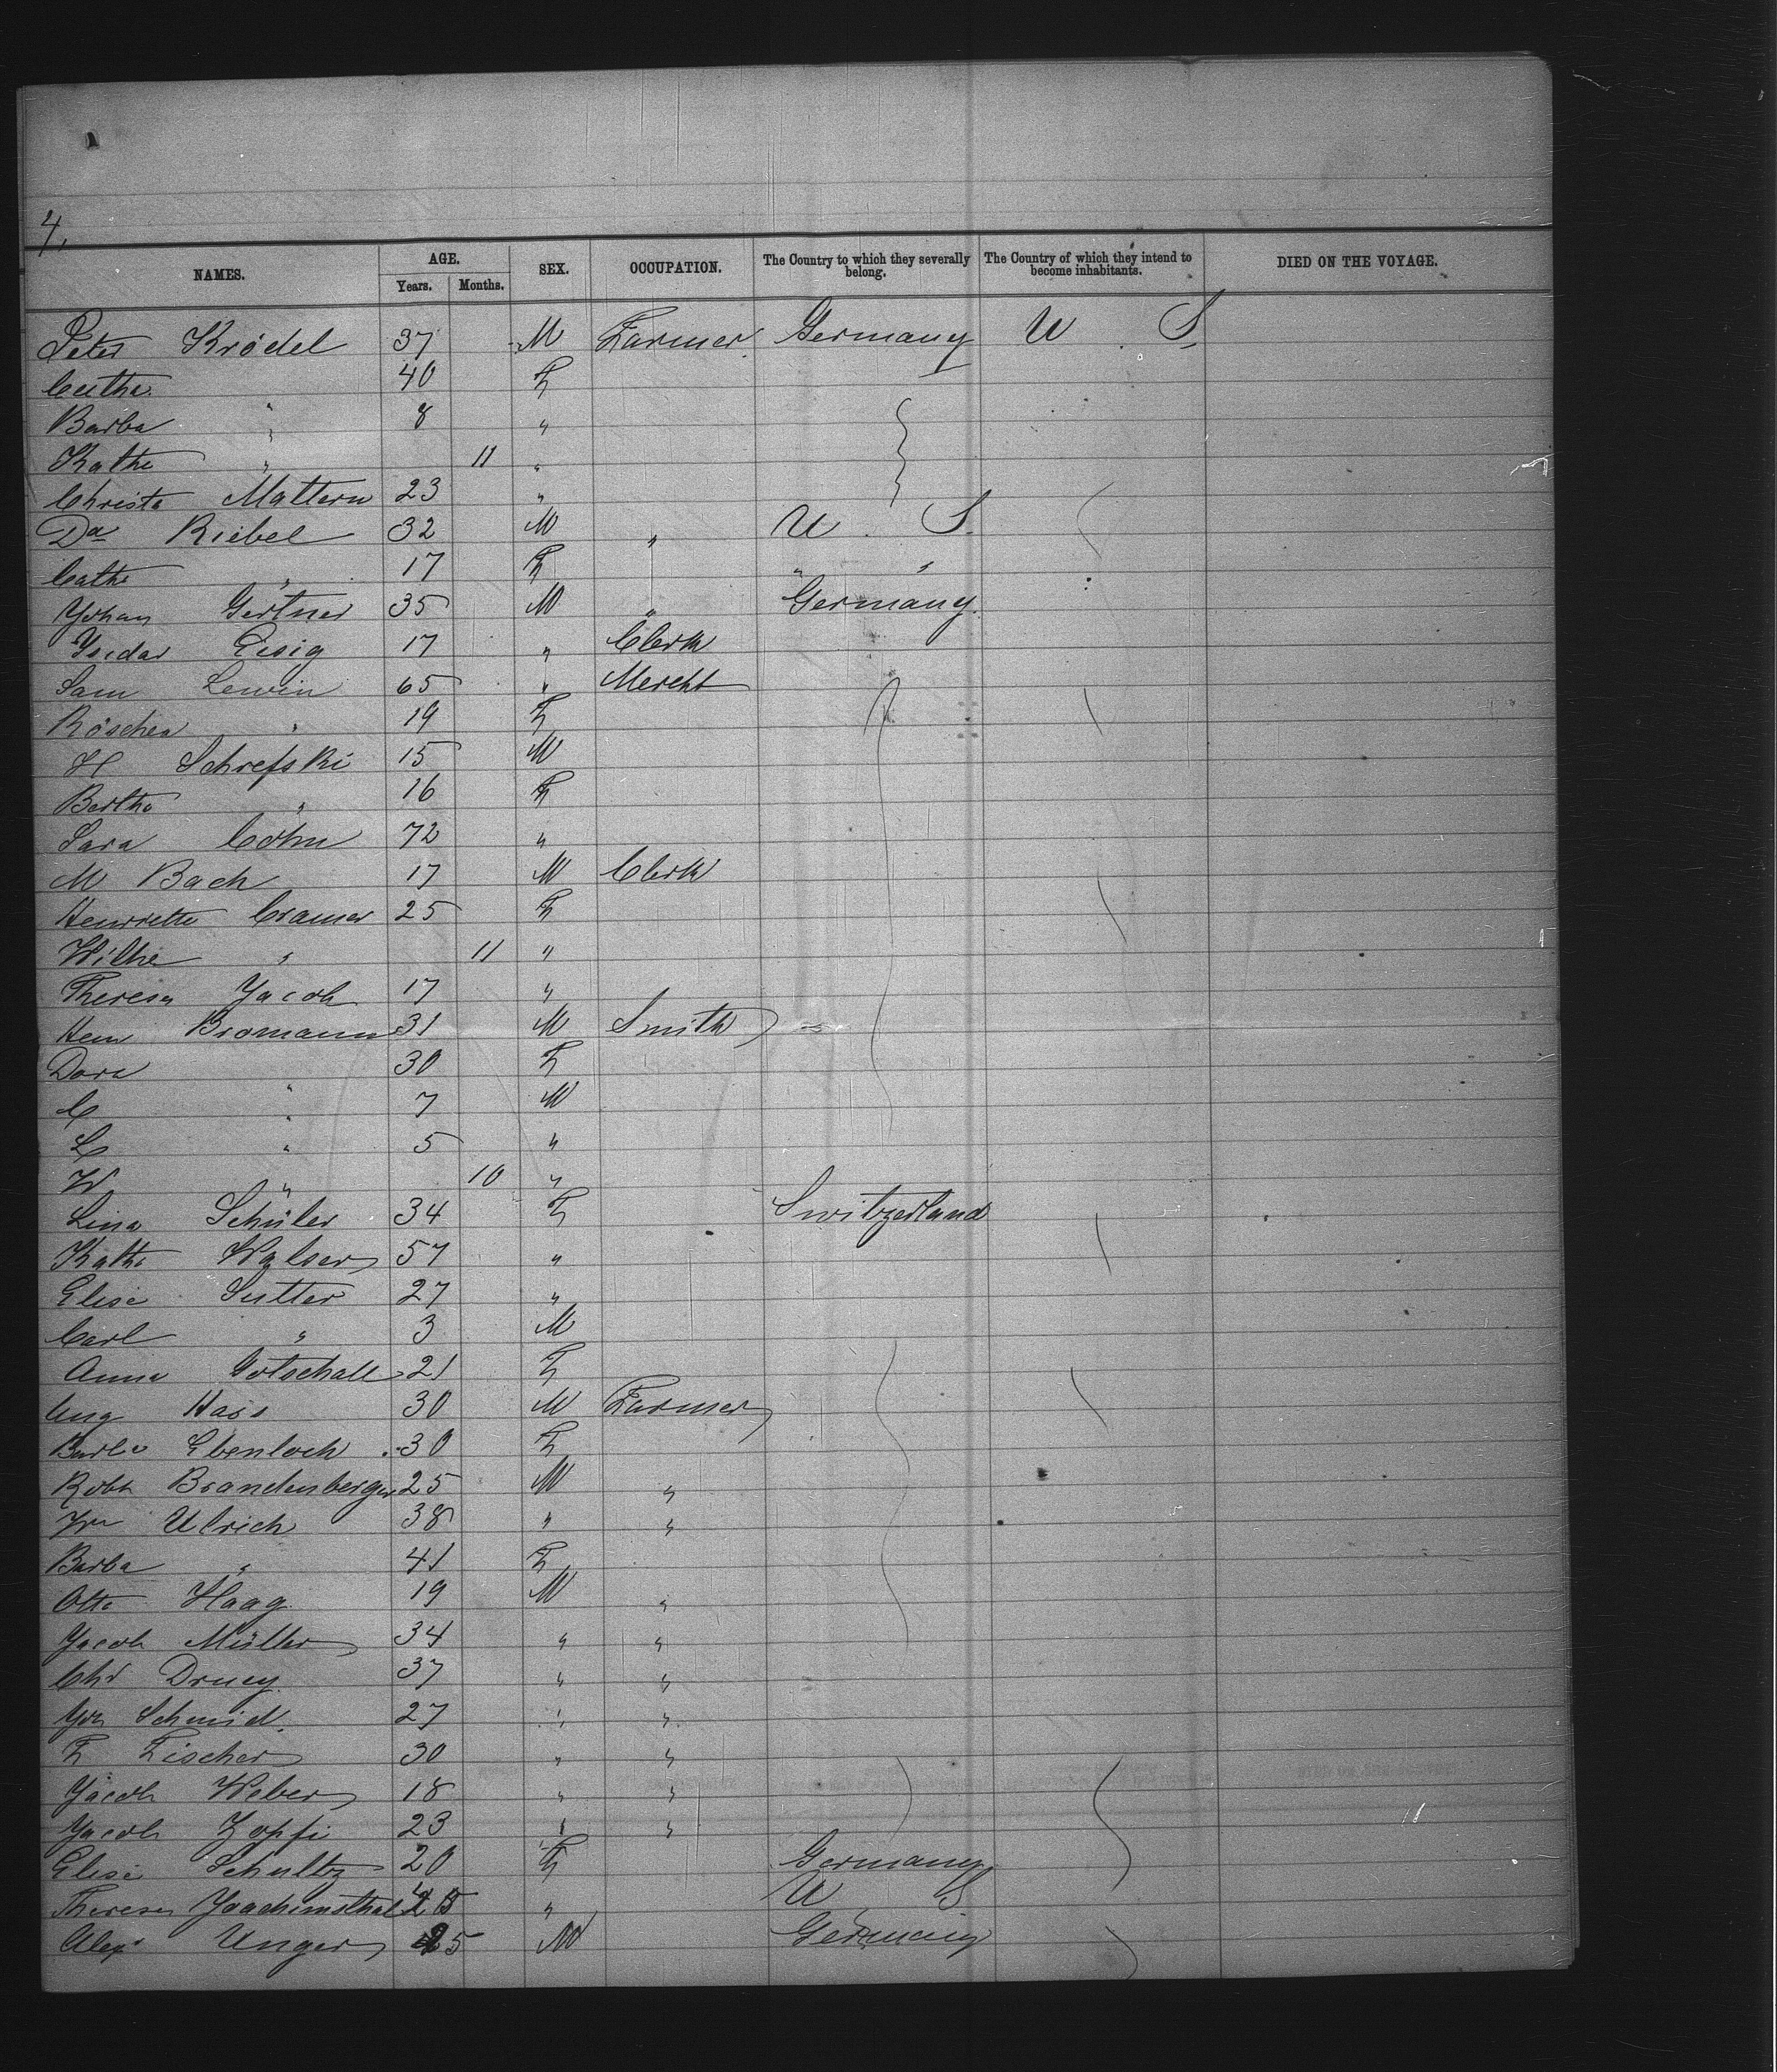 4,
NAMES. AGE. SEX. OCCUPATION. The Country to which they severally belong. The Country of which they intend to become inhabitants. DIED ON THE VOYAGE.
Years. Months.
Peter Krödel 37 M Farmer Germany U S
Cathe. " 40 F
Barba " 8 "
Kathe " 11 "
Christe Mattern 23 "
Da Riebel 32 M " U S.
Cathe " 17 F " "
Johan Gertner 35 M " Germany
Isidar Eisig 17 " Clerk
Sam Lewin 65 " Mercht
Röschen " 19 F
H Schrefski 15 M
Bertha " 16 F
Sara Cohn 72 "
M Bach 17 M Clerk
Henriette Cramer 25 F
Wilhe " 11 "
Theresa Jacob 17 "
Hem Bromann 31 M Smith
Dora " 30 F
C " 7 M
L " 5 "
W " 10 "
Lina Schüler 34 F Switzerland
Kathe Walser 57 "
Elise Sutter 27 "
Carl " 3 M
Anna Gotschall 21 F
Aug Hass 30 M Farmer
Barba Ebenloch 30 F
Robt Brandenberger 25 M "
Ulrich 38 " "
Barba " 41 F
Otto Haag 19 M "
Jacob Müller 34 " "
Chr Druey 37 " "
Joh Schmid. 27 " "
F Fischer 30 " "
Jacob Weber 18 " "
Jacob Zopfi 23 " "
Elise Schultz 20 F Germany
Theresa Joachimsthal "  U S
Alexr Unger M Germany